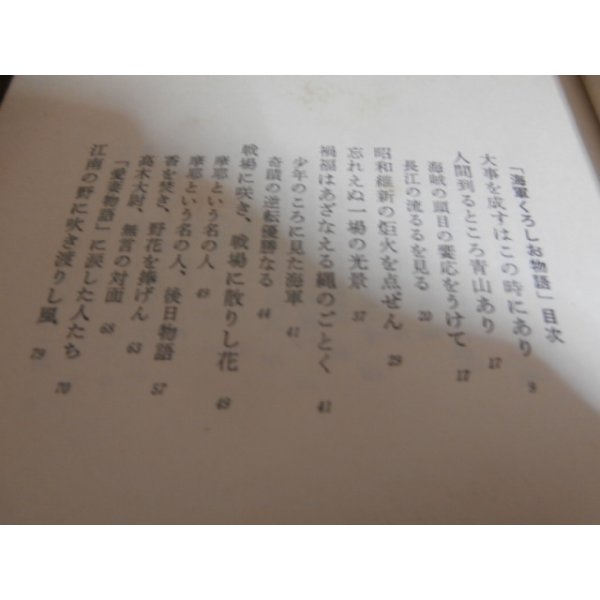 「海軍くろしお物語」目次
大事を成すはこの時にあり 9
人間到るところ青山あり 17
海賊の頭目の饗応をうけて 17
長江の流るるを見る 20
昭和維新の炬火を点ぜん 28
忘れえぬ一場の光景 37
禍福はあざなえる縄のごとく 41
少年のころに見た海軍 41
奇蹟の逆転優勝なる 44
戦場に咲き、戦場に散りし花 49
摩耶という名の人 49
摩耶という名の人、後日物語 57
香を焚き、野花を捧げん 63
高木大尉、無言の対面 68
「愛妻物語」に涙した人たち 70
江南の野に吹き渡りし風 79